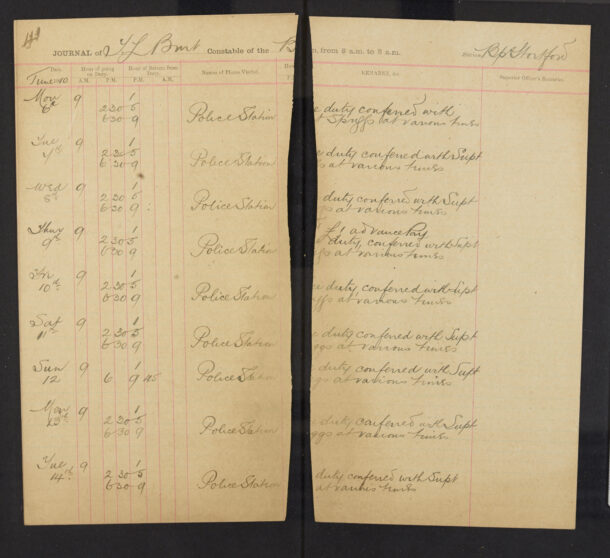 JOURNAL of Constable of the from 6 a.m. to 6 a.m.
Date Hour of going on Duty. Hour of Return from Duty. Name of Places Visited. REMARKS, &c. Superior Officer's
A.M. P.M. P.M. A.M.
Mon 9 1
6th 2 30 5 duty conferred with
6 30 9 Police Station Spriggs at various times
Tue 9 1
7th 2 30 5 duty conferred with Supt
6 30 9 Police Station at various times
Wed 9 1
8th 2 30 5 duty conferred with Supt
6 30 9 Police Station at various times
Thur 9 1 £1 advance Pay
9th 2 30 5 duty, conferred with Supt
6 30 9 Police Station at various times
Fri 9 1
10th 2 30 5 duty conferred with Supt
6 30 9 Police Station at various times
Sat 9 1
11th 2 30 5 duty conferred with Supt
6 30 9 Police Station at various times
Sun 9 1 duty conferred with Supt
12 6 9 Police Station at various times
Mon 9 1
13th 2 30 5 duty conferred with Supt
6 30 9 Police Station at various times
Tue 9 1
14th 2 30 5 duty conferred with Supt
6 30 9 Police Station at various times